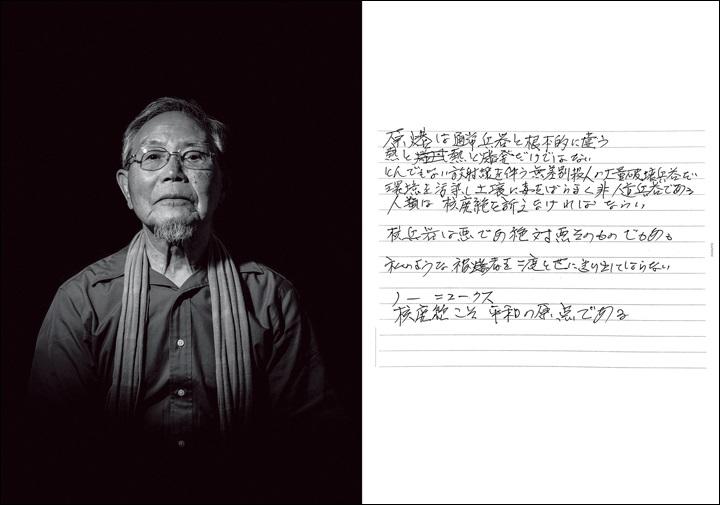 原爆は通常兵器と根本的に違う
熱と熱と爆発だけではない
とんでもない放射線を伴う無差別殺人の大量破壊兵器だ
環境を汚染し土壌に毒をばらまく非人道兵器である
人類は核廃絶を訴えなければならない
核兵器は悪であり絶対悪そのものでもある
私のような被爆者を二度と世に送り出してはならない
ノー ニュークス
核廃絶こそ平和の原点である